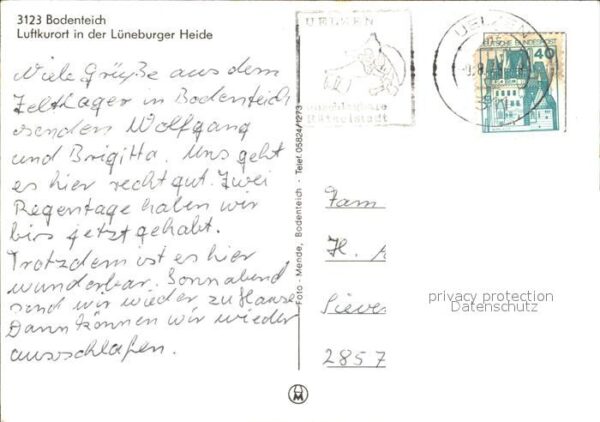 3123 Bodenteich
Luftkurort in der Lüneburger Heide
Viele Grüße aus dem
Zeltlager in Bodenteich
senden Wolfgang
und Brigitta. Uns geht
es hier recht gut. Zwei
Regentage haben wir
bis jetzt gehabt.
Trotzdem ist es hier
wunderbar. Sonnabend
sind wir wieder zu Hause
Dann können wir wieder
ausschlafen.
Foto - Mende, Bodenteich - Telef. 05824/1273
UELZEN
UELZEN
DEUTSCHE BUNDESPOST
40
Fam
H.
Siever
2857
privacy protection
Datenschutz